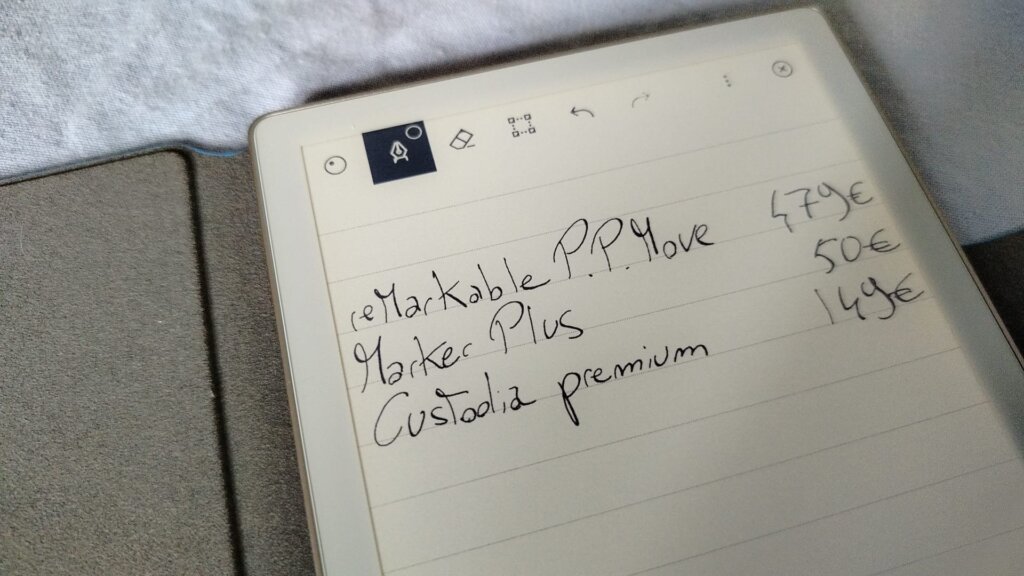 reMarkable P.P. Move 479€
Marker Plus 50€
Custodia premium 149€